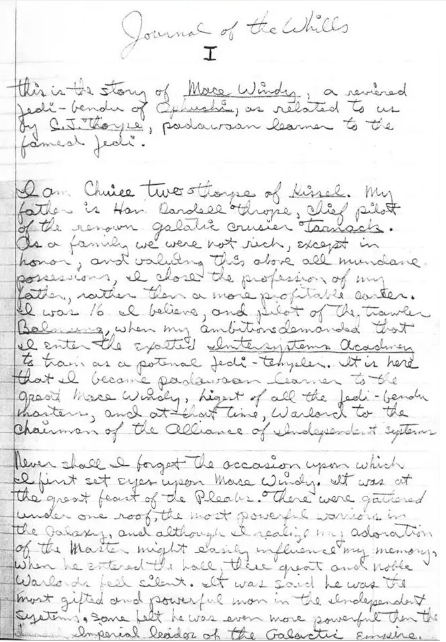 Journal of the Whills
I
this is the story of Mace Windy, a revered
Jedi-bendu of Ophuchi, as related to us
by C.J. thorpe, padawaan learner to the
famed Jedi.
I am Chuiee two thorpe of Kissel. My
father is Han Dardell thrope, chief pilot
of the renown galatic crusier Tarnack.
As a family we were not rich, except in
honor, and valuing this above all mundane
possessions, I chose the profession of my
father, rather then a more profitable career.
I was 16 I believe, and pilot of the trawler
Balmung, when my ambitions demanded that
I enter the exatted Intersystems Academy
to train as a potenial Jedi-templer. It is here
that I became padawaan learner to the
great Mace Windy, higest of all the Jedi-bendu
masters, and at that time, Warlord to the
Chairman of the Alliance of Independent Systems
Never shall I forget the occasion upon which
I first set eyes upon Mace Windy. It was at
the great feast of the Pleabs. there were gathered
under one roof, the most powerful warriors in
the Galaxy, and although I realize my adoration
of the Master might easily influence my memory,
when he entered the hall, these great and noble
Warlords fell silent. It was said he was the
most gifted and powerful man in the Independent
Systems. Some felt he was even more powerful then the
Imperial leader of the Galactic Empire.